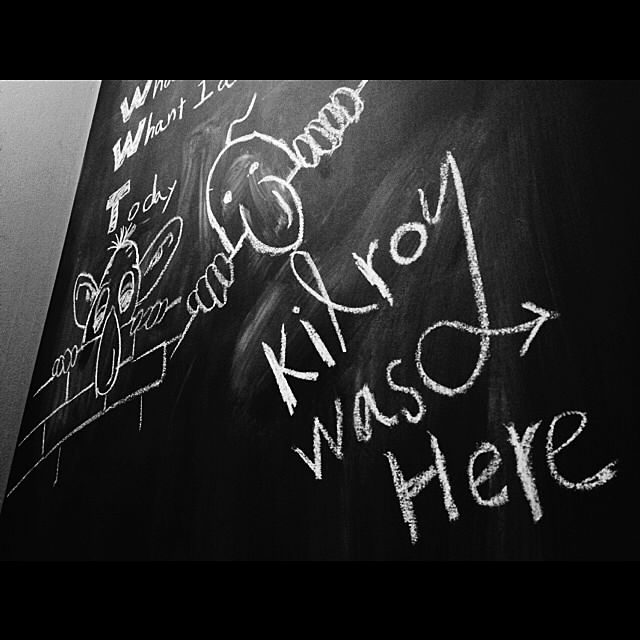 Whant I
Today
Kilroy
was
Here